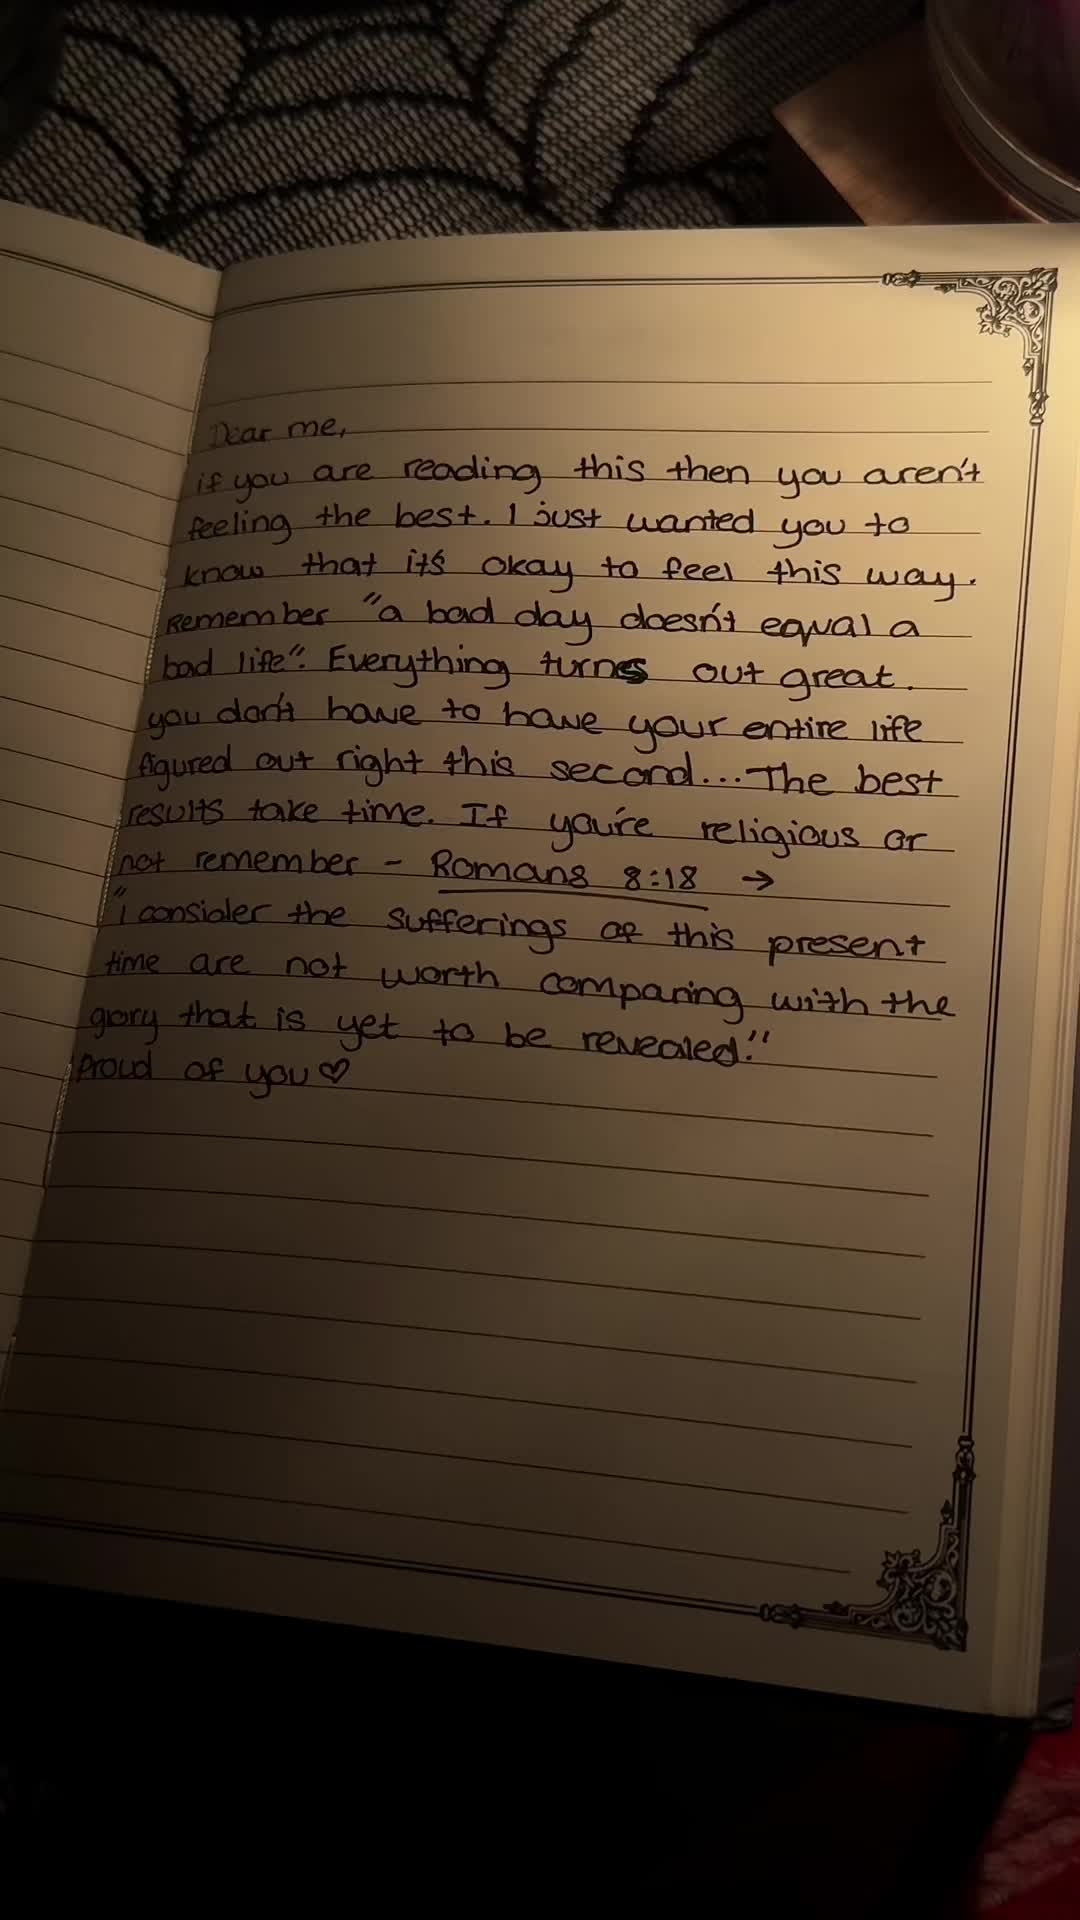 Dear me,
if you are reading this then you aren't
feeling the best. I just wanted you to
know that it's okay to feel this way.
Remember "a bad day doesn't equal a
bad life". Everything turns out great.
you don't have to have your entire life
figured out right this second... The best
results take time. If you're religious or
not remember - Romans 8:18 →
"i consider the sufferings of this present
time are not worth comparing with the
glory that is yet to be revealed."
Proud of you ♡